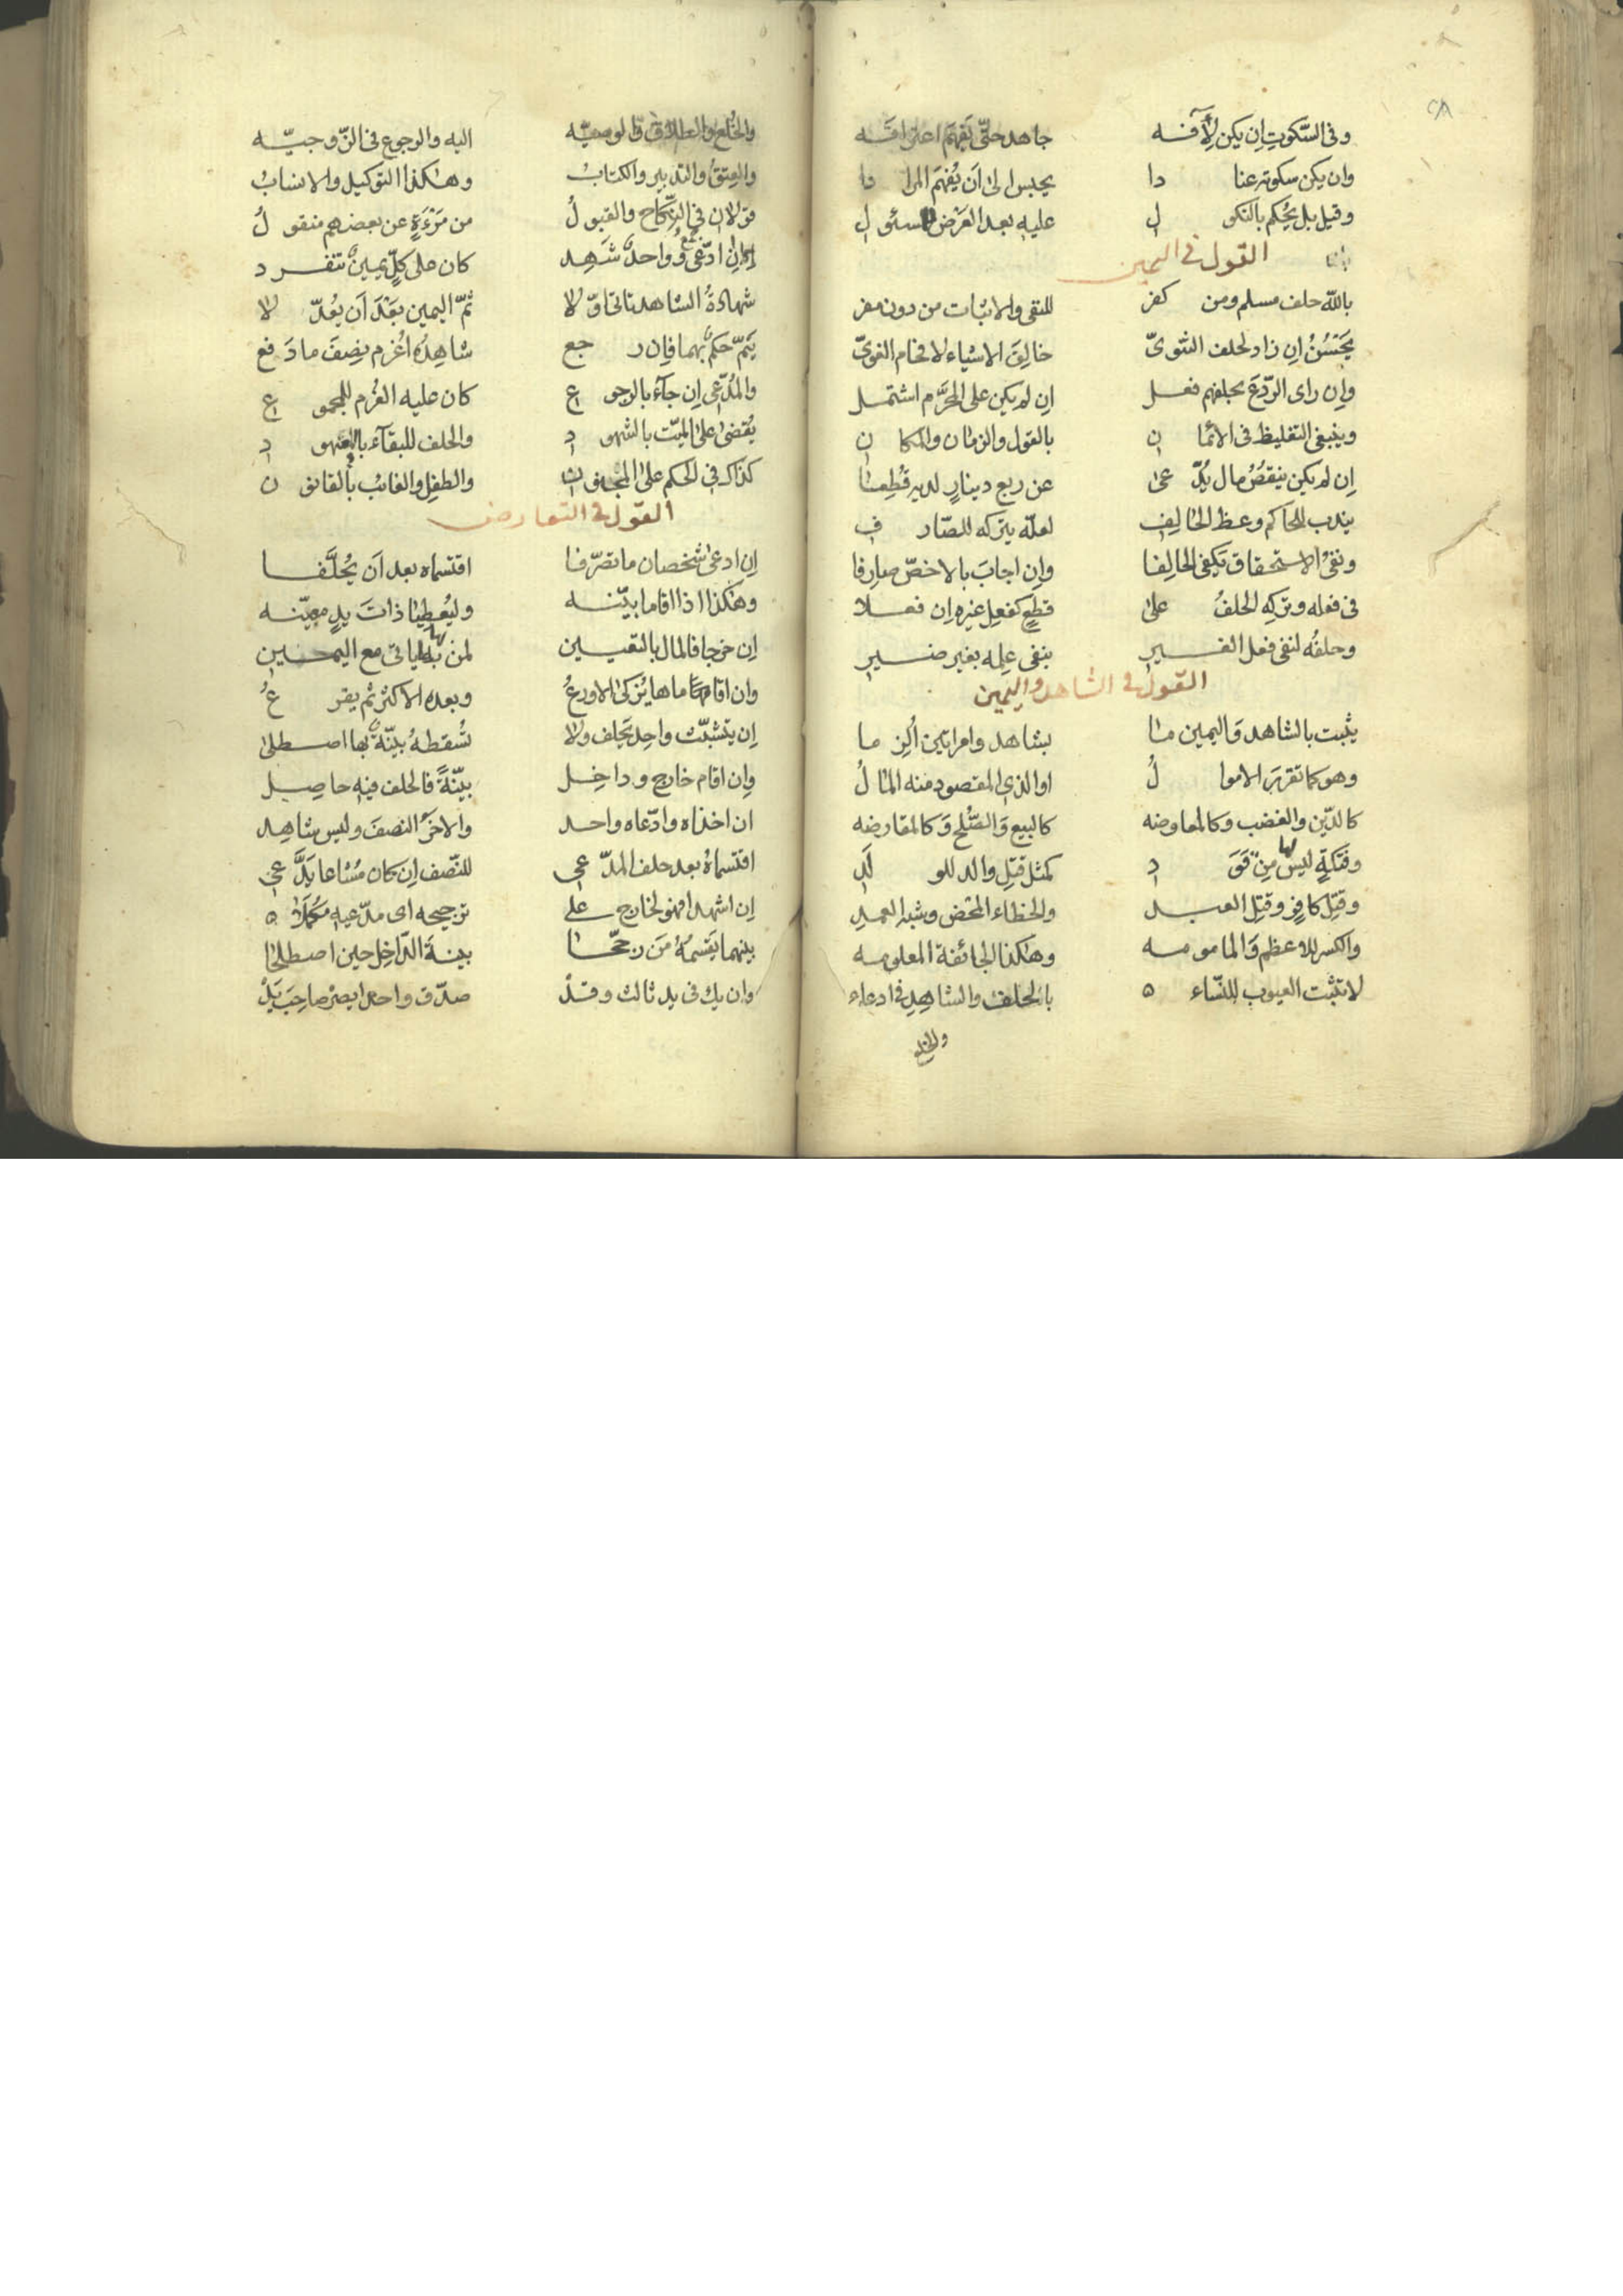 وفى السّكوتِ اِن يكن لِآَفـه جاهد حتّى تَفهمَ اعترافَـه
وان يكن سكوته عنا دا يحبس الى اَن يُفهمَ المرا دا
وقيل بل يُحْكم بالنكو لِ عليهِ بعد العَرْض للمسئو لِ
القول فى اليمين
بالله حلف مسلم ومن كفر للنفى والاثبات من دون مفر
يَحْسُنُ اِن زاد لحلف الثنوىّ خالِقَ الاشياء لافحام الغوىّ
وان راى الرّدْعَ بحلفهم فعـل اِن لم يكن على المحرَّم اشتمـل
وينبغى التغليظ فى الائما نِ بالقول والزمان والمكا نِ
اِن لم يكن ينقُصُ مال يُدَّ عىٰ عن ربع دينارٍ لديه قُطِعـا
يندب للحاكم وعظ الحالِفِ لعلّه يتركه للصّار فِ
ونفىُ الاستحقاق يَكفى الحالِفا وان اجابَ بالاخصّ صارِفا
فى فعله وتركِهِ الحلفُ علىٰ قطعٍ كفعلِ غيرِه اِن فعـلا
وحلفُه لنفى فعل الغـيرِ بنفى علمِه بغير ضـيرِ
القول فى الشاهد واليمين
يثبت بالشاهد وَاليمين ما بشاهد وامراتين اُلزِ ما
وهو كما تقررَ الاموا لُ او الذى المقصود منه المٰا لُ
كالدّين والغصب وكالمعاوضه كالبيع وَالصّلح وَكالمقارضه
وفتكةٍ ليس لها مِن قَوَ دِ كمثل قتلِ والد للو لَدِ
وقتل كافرٍ وقتلِ العبـد والخطاء المحض وشبهِ العمدِ
والكسر للاعظم وَالماموسه وهٰكذا الجائفة المعلومه
لا تثبت العيوب للنّساء ٥ بالحلف والشاهِدِ فى ادعاء
والخلع
والخُلع والطلاق والوصيّه اليه والرجوع فى الزّوجيّـه
والعِتقُ والتدبير والكتابُ وهٰكذا التوكيل والانسابُ
قولان فى النّكاح والقبو لُ من مَرْءَةٍ عن بعضهم منقو لُ
اِن ادّعى جمعٌ وواحدٌ شَهِد كان على كلٍّ يمينٌ تنفـرد
شهادةُ الشاهد تاتى اوّ لا ثمّ اليمين بَعْدَ اَن يُعدّ لا
يَتمّ حكمٌ بهما فاِن ر جع شاهِدُه اُغرم نِصفَ ما دَ فع
والمُدّعى اِن جآءَ بالرجو عِ كان عليه الغُرم للمجمو عِ
يُقضىٰ على الميّت بالشهو دِ والحلف للبقآء بالعهو دِ
كذاك فى الحكم على المجنو نِ والطفلِ والغائب بالقانو نِ
القول فى التعارض
اِن ادعىٰ شخصان ما تصرّفا اقتسماه بعد اَن يُحلَّفـا
وهٰكذا اذا اقاما بيّنـه وليُعطيا ذاتَ يدٍ معيّنـه
اِن خرجا فالمال بالتعيـين لمن بها ياتى مع اليمـينِ
وان اقاماها يُزكىٰ الاورعُ وبعده الاكثر ثم يقر عُ
اِن يتشبّث واحِد يَحلف ولا تُسْقطهُ بيّنةٌ بها اصـطلىٰ
واِن اقام خارج وداخِـل بيّنةً فالحلف فيهِ حاصِـل
ان اخذاه وادّعاه واحـد والاخرُ النصفَ وليس شاهِد
اقتسماهُ بعد حلف المدّ عى للنّصف اِن كان مُشاعا يَدَّ عى
اِن اشهدا فهو لخارج على ترجيحه اى مدّعيهِ مكملا ٥
بينهما يَقسمهُ مَن رجّحـا بينـةَ الدّاخِل حين اصطلحا
وان يك فى يد ثالث وقـدْ صدّق واحدا يصِرْ صاحِبَ يَدْ